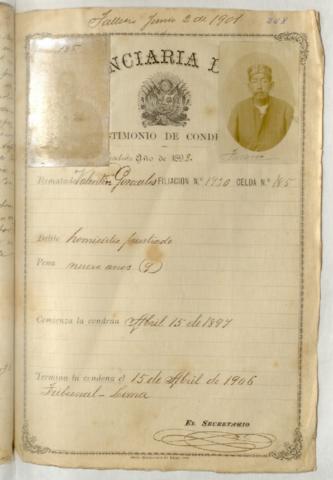 Talleres Junio 2 de 1901
268
185
NCIARIA D
STIMONIO DE COND
Año de 189
Rematado Valentin Gonzales FILIACIÓN N.º 1920 CELDA N.º 185
Delito homicidio frustrado
Pena nueve años (9)
Comienza la condena Abril 15 de 1897
Termina la condena el 15 de Abril de 1906
Tribunal - Lima
EL SECRETARIO